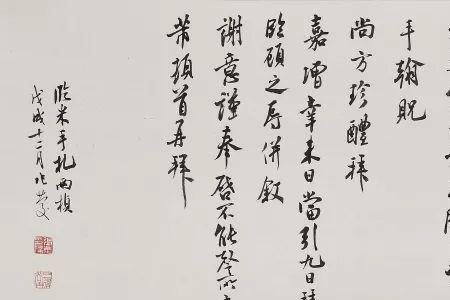 手翰貺
尚方珍醴拜
嘉幸来日當引九日拜
臨顧之辱併敘
謝意謹奉啓不能罄所
芾頓首再拜
臨米手札兩
戊戌十二月